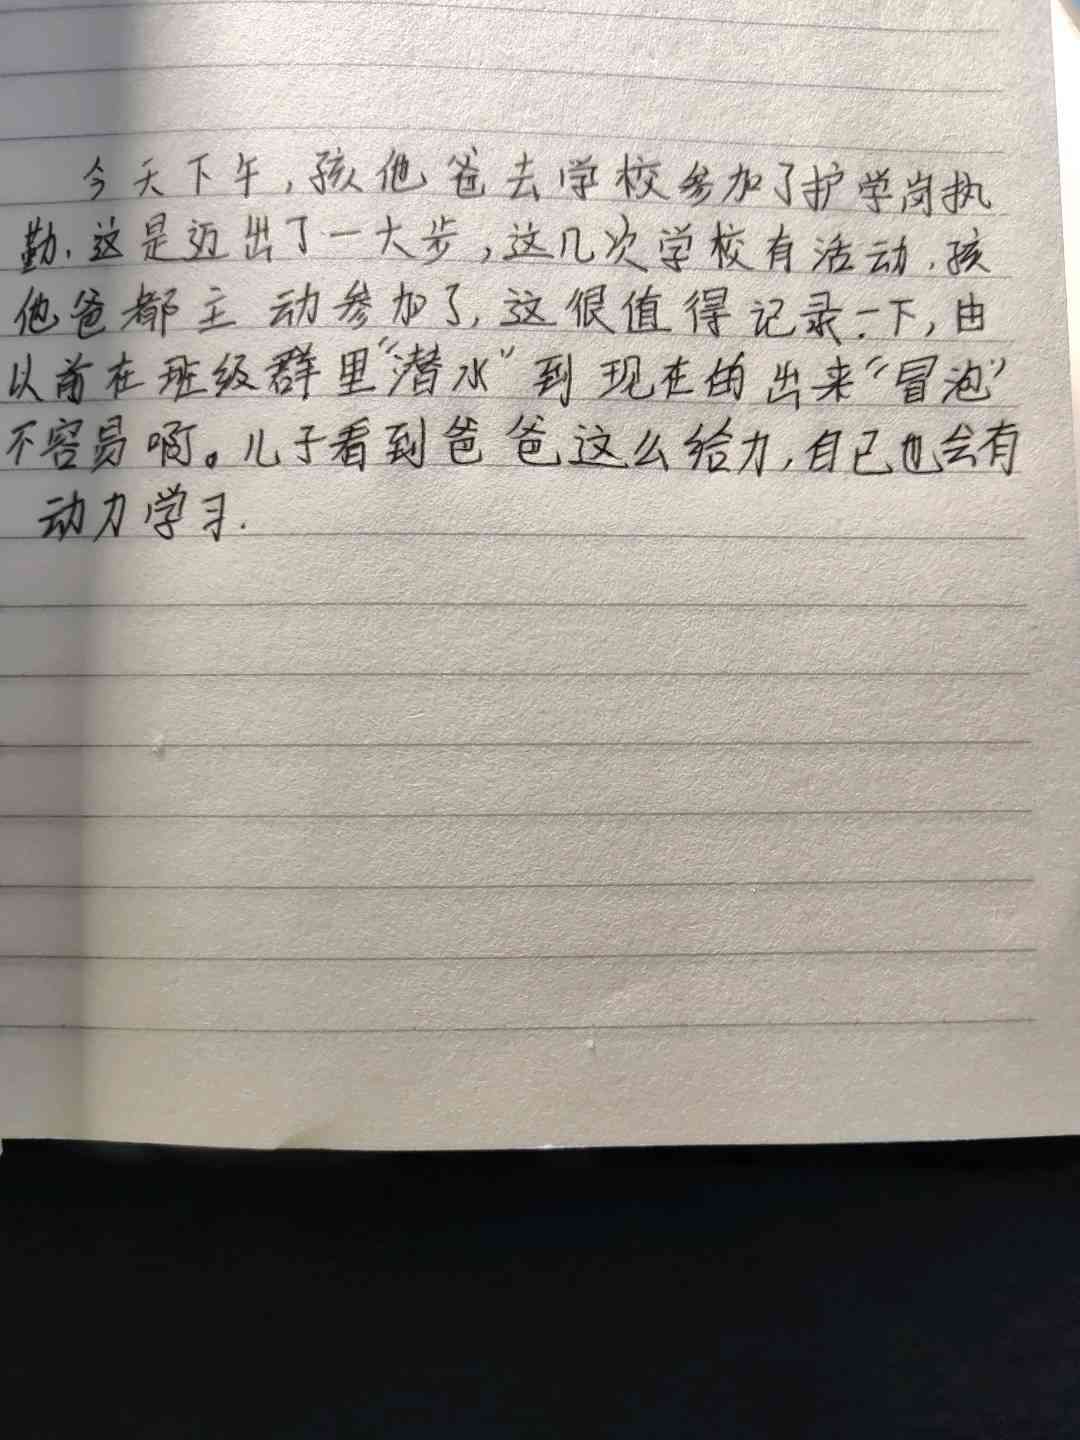 今天下午,孩他爸去学校参加了护学岗执
勤.这是迈出了一大步,这几次学校有活动.孩
他爸都主动参加了,这很值得记录一下,由
以前在班级群里“潜水”到现在的出来“冒泡”
不容易啊。儿子看到爸爸这么给力,自己也会有
动力学习.